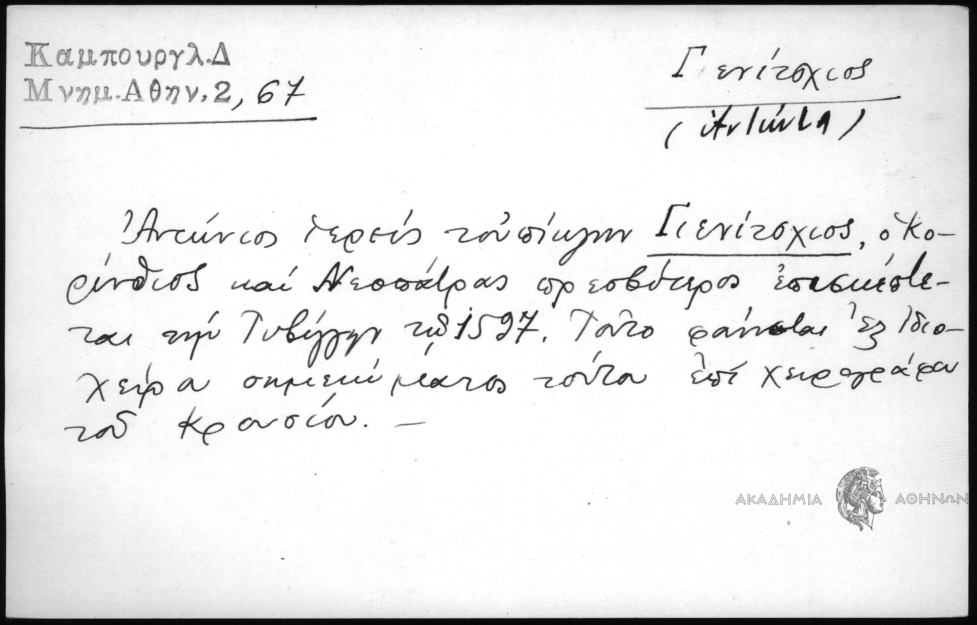 Καμπουργλ.Δ
Μνημ.Αθην.2, 67
Γιενίτσχιος
(Ἀντώνιος)
Ἀντώνιος ἱερεύς τοὐπίκλην Γιενίτσχιος, ὁ Κο-
ρίνθιος καί Νεοπάτρας πρεσβύτερος ἐπισκέπτε-
ται τήν Τυβίγγην τῷ 1597. Τοῦτο φαίνεται ἐξ ἰδιο-
χείρου σημειώματος τούτου ἐπί χειρογράφου
τοῦ Κρουσίου. —
ΑΚΑΔΗΜΙΑ ΑΘΗΝΩΝ